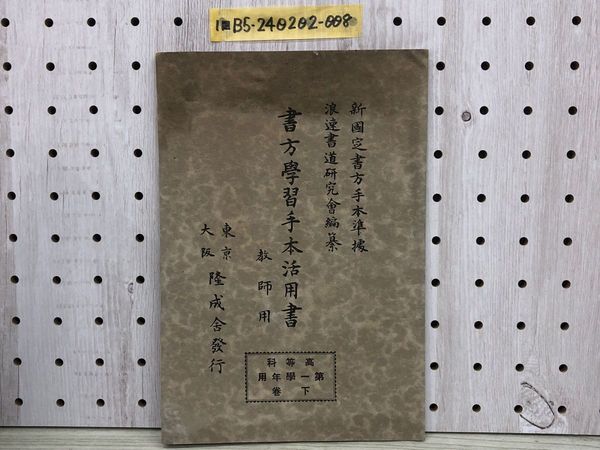 1階B5-240202-008
新國定書方手本準據
浪速書道研究會編纂
書方學習手本活用書
教師用
東京
大阪
隆成舍發行
高等科
第一學年用
下卷